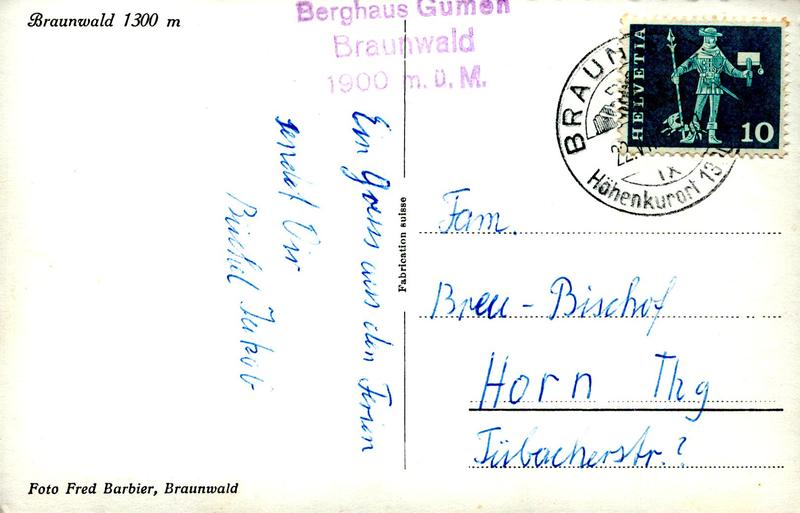 Braunwald 1300 m
Berghaus Gumen
Braunwald
1900 m.ü.M.
Ein Gruss aus den Ferien
sendet Dir
Büchel Jakob
Fabrication suisse
HELVETIA
10
BRAUN
22.VI
IX
Höhenkurort 13
Fam.
Breu - Bischof
Horn Thg
Tübacherstr.?
Foto Fred Barbier, Braunwald